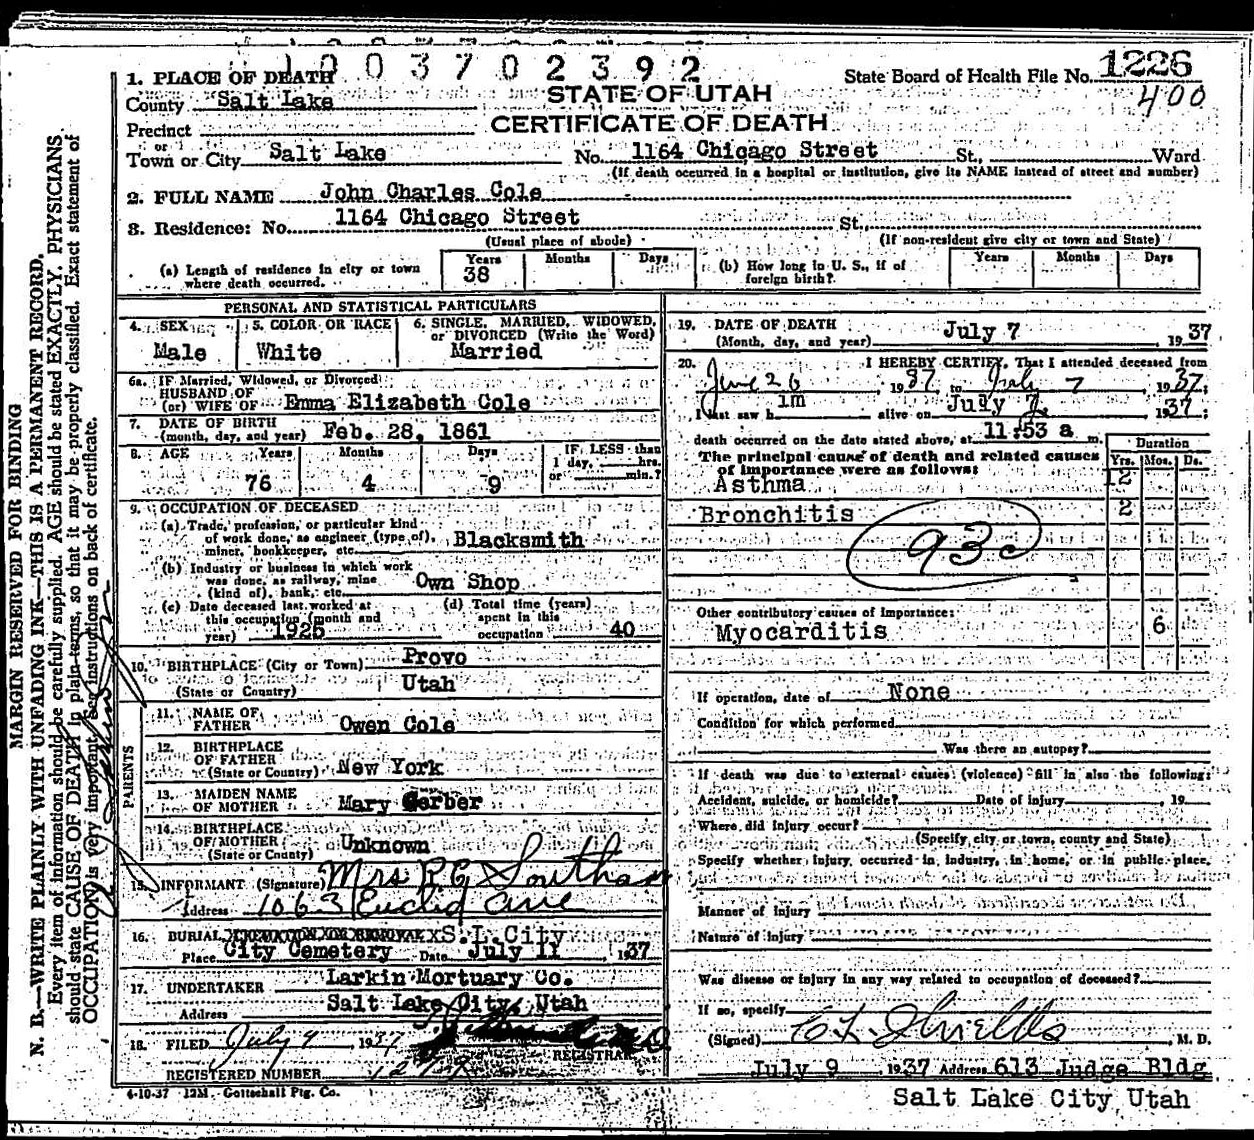 1003702392
1. PLACE OF DEATH
County Salt Lake
Precinct
or
Town or City Salt Lake No. 1164 Chicago Street St., Ward
(If death occurred in a hospital or institution, give its NAME instead of street and number)
State Board of Health File No. 1226
400
STATE OF UTAH
CERTIFICATE OF DEATH
2. FULL NAME John Charles Cole
3. Residence: No. 1164 Chicago Street St.,
(Usual place of abode) (If non-resident give city or town and State)
(a) Length of residence in city or town where death occurred. Years 38 Months Days
(b) How long in U. S., if of foreign birth? Years Months Days
PERSONAL AND STATISTICAL PARTICULARS
4. SEX Male
5. COLOR OR RACE White
6. SINGLE, MARRIED, WIDOWED, or DIVORCED (Write the Word) Married
6a. IF Married, Widowed, or Divorced
HUSBAND OF
(or) WIFE OF Emma Elizabeth Cole
7. DATE OF BIRTH
(month, day, and year) Feb. 28, 1861
8. AGE Years Months Days IF LESS than
1 day, hrs.
or min.?
76 4 9
9. OCCUPATION OF DECEASED
(a) Trade, profession, or particular kind
of work done, as engineer (type of),
miner, bookkeeper, etc. Blacksmith
(b) Industry or business in which work
was done, as railway, mine
(kind of), bank, etc. Own Shop
(c) Date deceased last worked at
this occupation (month and
year) 1925
(d) Total time (years)
spent in this
occupation 40
10. BIRTHPLACE (City or Town) Provo
(State or Country) Utah
PARENTS
11. NAME OF
FATHER Owen Cole
12. BIRTHPLACE
OF FATHER
(State or Country) New York
13. MAIDEN NAME
OF MOTHER Mary Gerber
14. BIRTHPLACE
OF MOTHER
(State or County) Unknown
15. INFORMANT (Signature) Mrs P G Southam
Address 1063 Euclid Ave
16. BURIAL, CREMATION OR REMOVAL S.L. City
Place City Cemetery Date July 11 1937
17. UNDERTAKER Larkin Mortuary Co.
Address Salt Lake City, Utah
18. FILED July 9 1937
REGISTRAR
REGISTERED NUMBER
4-10-37 12M Gottschall Ptg. Co.
19. DATE OF DEATH
(Month, day, and year) July 7 1937
20. I HEREBY CERTIFY, That I attended deceased from
June 26, 1937 to July 7 1937;
I last saw him alive on July 7 1937;
death occurred on the date stated above, at 11:53 a m.
The principal cause of death and related causes
of importance were as follows:
Duration
Yrs. Mos. Ds.
Asthma 12
Bronchitis 2
93c
Other contributory causes of importance:
Myocarditis 6
If operation, date of None
Condition for which performed
Was there an autopsy?
If death was due to external causes (violence) fill in also the following:
Accident, suicide, or homicide? Date of injury , 19
Where did injury occur?
(Specify city or town, county and State)
Specify whether injury occurred in industry, in home, or in public place.
Manner of injury
Nature of injury
Was disease or injury in any way related to occupation of deceased?
If so, specify
(Signed) C L Shields, M. D.
July 9 1937 Address 613 Judge Bldg
Salt Lake City, Utah
MARGIN RESERVED FOR BINDING
N. B.—WRITE PLAINLY WITH UNFADING INK—THIS IS A PERMANENT RECORD.
Every item of information should be carefully supplied. AGE should be stated EXACTLY. PHYSICIANS
should state CAUSE OF DEATH in plain terms, so that it may be properly classified. Exact statement of
OCCUPATION is very important. See instructions on back of certificate.